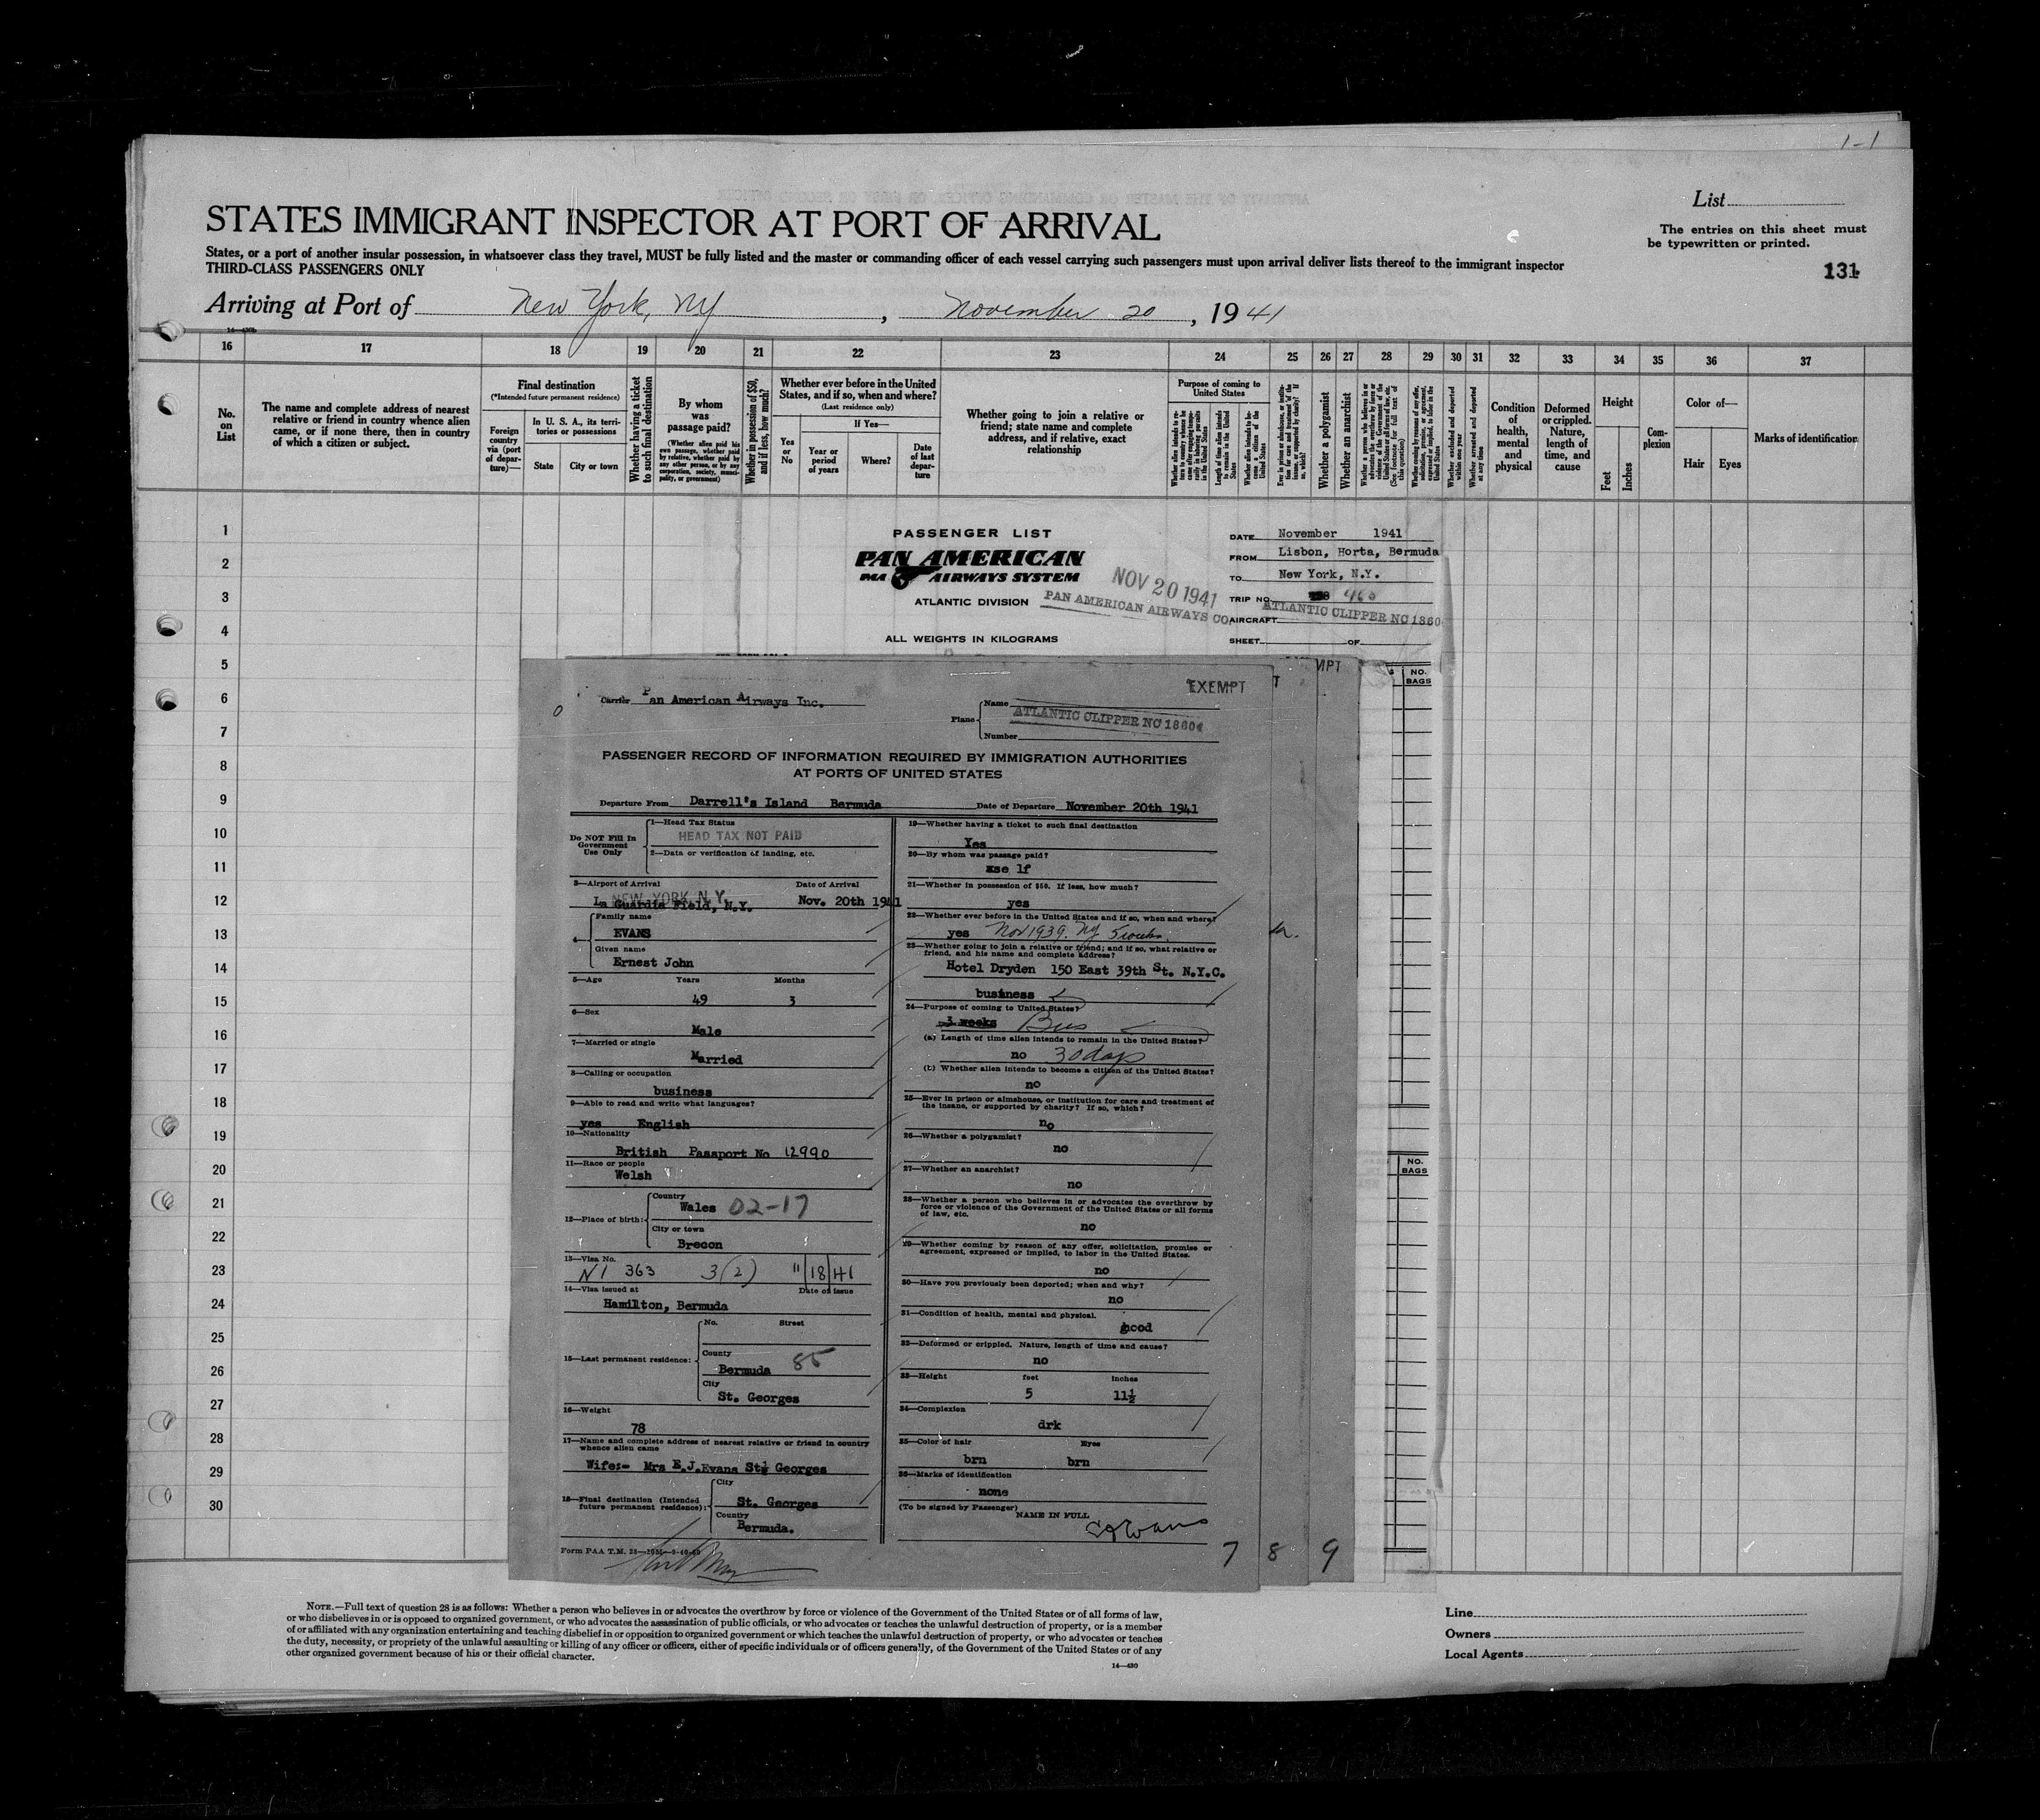 1-1
List
STATES IMMIGRANT INSPECTOR AT PORT OF ARRIVAL
The entries on this sheet must
be typewritten or printed.
States, or a port of another insular possession, in whatsoever class they travel, MUST be fully listed and the master or commanding officer of each vessel carrying such passengers must upon arrival deliver lists thereof to the immigrant inspector
THIRD-CLASS PASSENGERS ONLY
131
Arriving at Port of New York, NY, November 20, 1941
16 17 18 19 20 21 22 23 24 25 26 27 28 29 30 31 32 33 34 35 36 37
No. on List
The name and complete address of nearest relative or friend in country whence alien came, or if none there, then in country of which a citizen or subject.
Final destination
(*Intended future permanent residence)
Foreign country via (port of departure)—
In U. S. A., its territories or possessions
State
City or town
Whether having a ticket to such final destination
By whom was passage paid?
(Whether alien paid his own passage, whether paid by relative, whether paid by any other person, or by any corporation, society, municipality, or government)
Whether in possession of $50, and if less, how much?
Whether ever before in the United States, and if so, when and where?
(Last residence only)
If Yes—
Yes or No
Year or period of years
Where?
Date of last departure
Whether going to join a relative or friend; state name and complete address, and if relative, exact relationship
Purpose of coming to United States
Length of time alien intends to remain in the United States
Whether alien intends to become a citizen of the United States
Whether a polygamist
Whether an anarchist
Whether excluded and deported within one year
Whether arrested and deported at any time
Condition of health, mental and physical
Deformed or crippled. Nature, length of time, and cause
Height
Feet
Inches
Complexion
Color of—
Hair
Eyes
Marks of identification
1
2
3
4
5
6
7
8
9
10
11
12
13
14
15
16
17
18
19
20
21
22
23
24
25
26
27
28
29
30
PASSENGER LIST
PAN AMERICAN
PAA AIRWAYS SYSTEM
ATLANTIC DIVISION
ALL WEIGHTS IN KILOGRAMS
NOV 20 1941
PAN AMERICAN AIRWAYS CO
DATE November 1941
FROM Lisbon, Horta, Bermuda
TO New York, N.Y.
TRIP NO. 460
AIRCRAFT ATLANTIC CLIPPER NC 1860
SHEET OF
NO. BAGS
NO. BAGS
MPT
T
EXEMPT
Carrier Pan American Airways Inc.
Plane
Name ATLANTIC CLIPPER NC 18604
Number
PASSENGER RECORD OF INFORMATION REQUIRED BY IMMIGRATION AUTHORITIES
AT PORTS OF UNITED STATES
Departure From Darrell's Island Bermuda Date of Departure November 20th 1941
Do NOT Fill In
Government
Use Only
1—Head Tax Status
HEAD TAX NOT PAID
2—Data or verification of landing, etc.
3—Airport of Arrival Date of Arrival
NEW YORK N.Y.
La Guardia Field, N.Y. Nov. 20th 1941
4—
Family name
EVANS
Given name
Ernest John
5—Age Years Months
49 3
6—Sex
Male
7—Married or single
Married
8—Calling or occupation
business
9—Able to read and write what languages?
yes English
10—Nationality
British Passport No 12990
11—Race or people
Welsh
12—Place of birth:
Country
Wales 02-17
City or town
Brecon
13—Visa No.
NI 363 3(2) 11/18/41
14—Visa issued at Date of issue
Hamilton, Bermuda
15—Last permanent residence:
No. Street
County
Bermuda 85
City
St. Georges
16—Weight
78
17—Name and complete address of nearest relative or friend in country
whence alien came
Wife:- Mrs E.J.Evans St. Georges
18—Final destination (Intended
future permanent residence):
City
St. Georges
Country
Bermuda.
Form PAA T.M.
19—Whether having a ticket to such final destination
Yes
20—By whom was passage paid?
self
21—Whether in possession of $50. If less, how much?
yes
22—Whether ever before in the United States and if so, when and where?
yes Nov 1939. NY 5 weeks.
23—Whether going to join a relative or friend; and if so, what relative or
friend, and his name and complete address?
Hotel Dryden 150 East 39th St. N.Y.C.
business
24—Purpose of coming to United States?
3 weeks Bus
(a) Length of time alien intends to remain in the United States?
no 30 days
(b) Whether alien intends to become a citizen of the United States?
no
25—Ever in prison or almshouse, or institution for care and treatment of
the insane, or supported by charity? If so, which?
no
26—Whether a polygamist?
no
27—Whether an anarchist?
no
28—Whether a person who believes in or advocates the overthrow by
force or violence of the Government of the United States or all forms
of law, etc.
no
29—Whether coming by reason of any offer, solicitation, promise or
agreement, expressed or implied, to labor in the United States.
no
30—Have you previously been deported; when and why?
no
31—Condition of health, mental and physical.
good
32—Deformed or crippled. Nature, length of time and cause?
no
33—Height feet inches
5 11½
34—Complexion
drk
35—Color of hair Eyes
brn brn
36—Marks of identification
none
(To be signed by Passenger)
NAME IN FULL
EJEvans
7 8 9
NOTE.—Full text of question 28 is as follows: Whether a person who believes in or advocates the overthrow by force or violence of the Government of the United States or of all forms of law,
or who disbelieves in or is opposed to organized government, or who advocates the assassination of public officials, or who advocates or teaches the unlawful destruction of property, or is a member
of or affiliated with any organization entertaining and teaching disbelief in or opposition to organized government or which teaches the unlawful destruction of property, or who advocates or teaches
the duty, necessity, or propriety of the unlawful assaulting or killing of any officer or officers, either of specific individuals or of officers generally, of the Government of the United States or of any
other organized government because of his or their official character.
14—430
Line
Owners
Local Agents